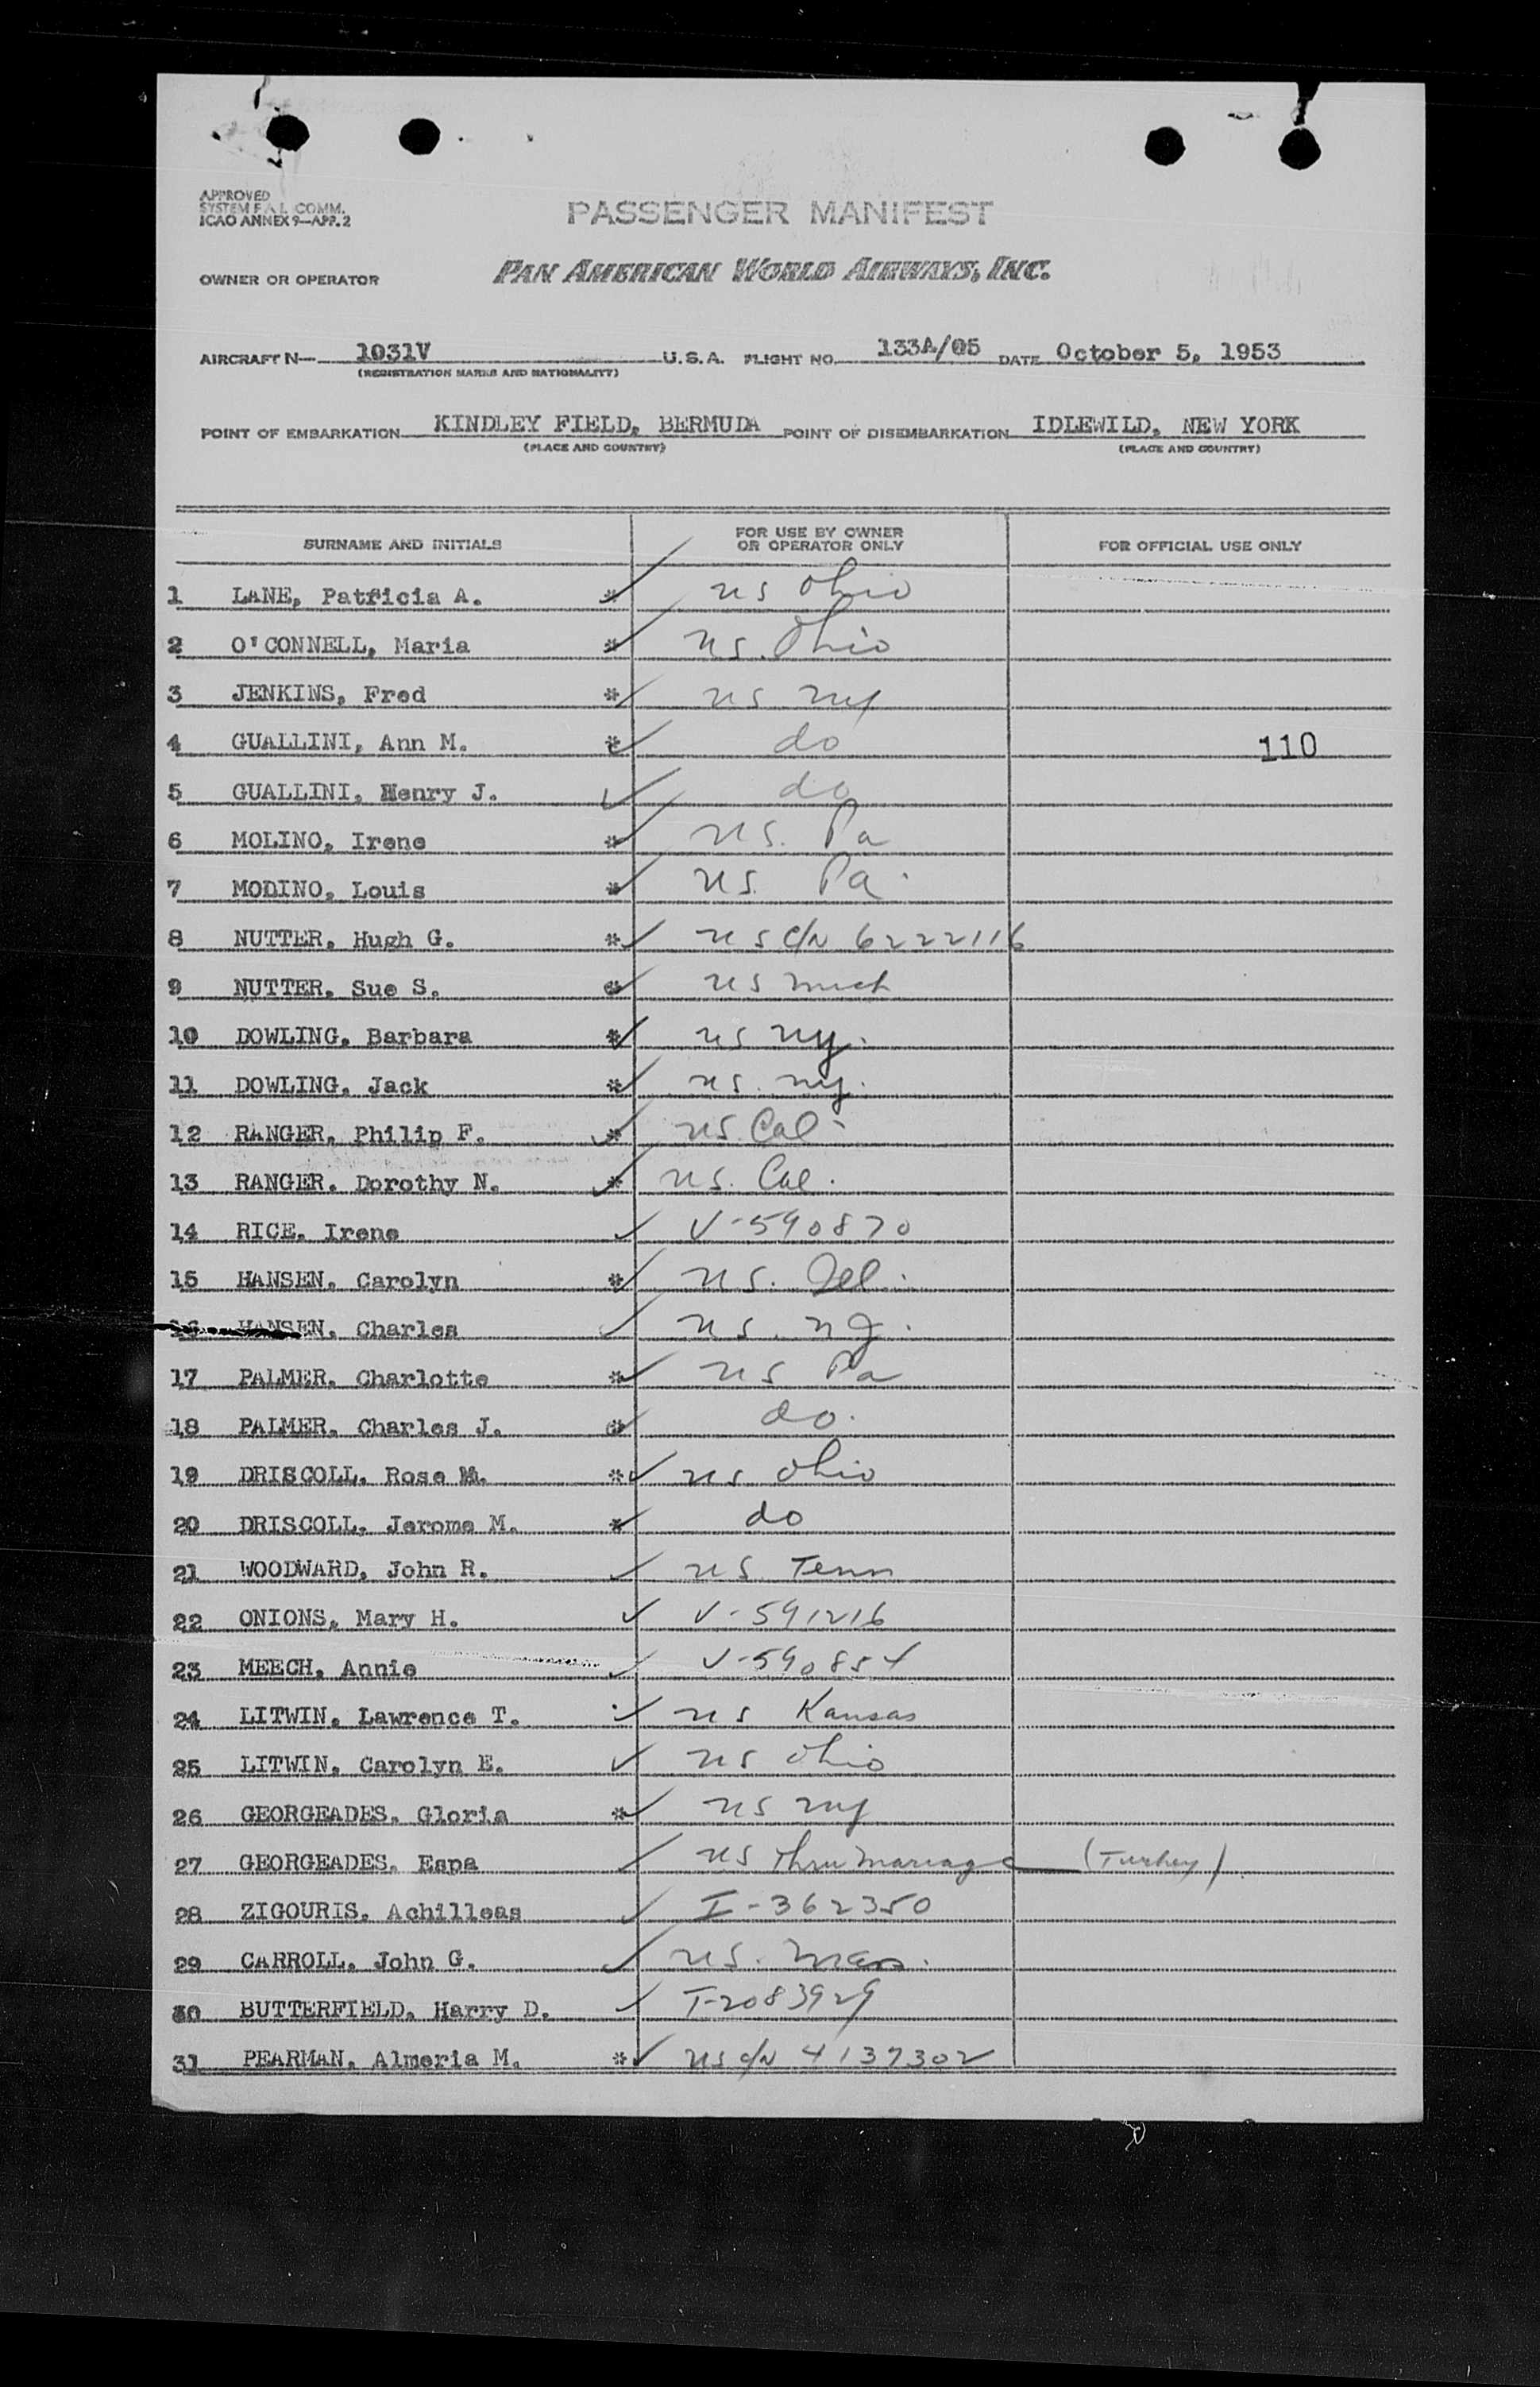 APPROVED
SYSTEM F.A.L. COMM.
ICAO ANNEX 9—APP. 2
PASSENGER MANIFEST
OWNER OR OPERATOR PAN AMERICAN WORLD AIRWAYS, INC.
AIRCRAFT N— 1031V U.S.A. FLIGHT NO. 133A/05 DATE October 5, 1953
(REGISTRATION MARKS AND NATIONALITY)
POINT OF EMBARKATION KINDLEY FIELD, BERMUDA POINT OF DISEMBARKATION IDLEWILD, NEW YORK
(PLACE AND COUNTRY) (PLACE AND COUNTRY)
SURNAME AND INITIALS FOR USE BY OWNER OR OPERATOR ONLY FOR OFFICIAL USE ONLY
1 LANE, Patricia A. * us Ohio
2 O'CONNELL, Maria * us. Ohio
3 JENKINS, Fred * us ny
4 GUALLINI, Ann M. * do 110
5 GUALLINI, Henry J. do
6 MOLINO, Irene * us. Pa
7 MODINO, Louis * us. Pa.
8 NUTTER, Hugh G. * us c/N 6222116
9 NUTTER, Sue S. us mich
10 DOWLING, Barbara * us ny.
11 DOWLING, Jack * us. ny.
12 RANGER, Philip F. * us. Cal.
13 RANGER, Dorothy N. * us. Cal.
14 RICE, Irene V-590870
15 HANSEN, Carolyn * us.
16 HANSEN, Charles us. nJ.
17 PALMER, Charlotte * us Pa
18 PALMER, Charles J. do.
19 DRISCOLL, Rose M. * us Ohio
20 DRISCOLL, Jerome M. * do
21 WOODWARD, John R. us Tenn
22 ONIONS, Mary H. V-591216
23 MEECH, Annie V-590854
24 LITWIN, Lawrence T. us Kansas
25 LITWIN, Carolyn E. us Ohio
26 GEORGEADES, Gloria * us ny
27 GEORGEADES, Espa us thru mariage (Turkey)
28 ZIGOURIS, Achilleas I-362350
29 CARROLL, John G. us. Mass.
30 BUTTERFIELD, Harry D. T-2083929
31 PEARMAN, Almeria M. * us c/N 4137302